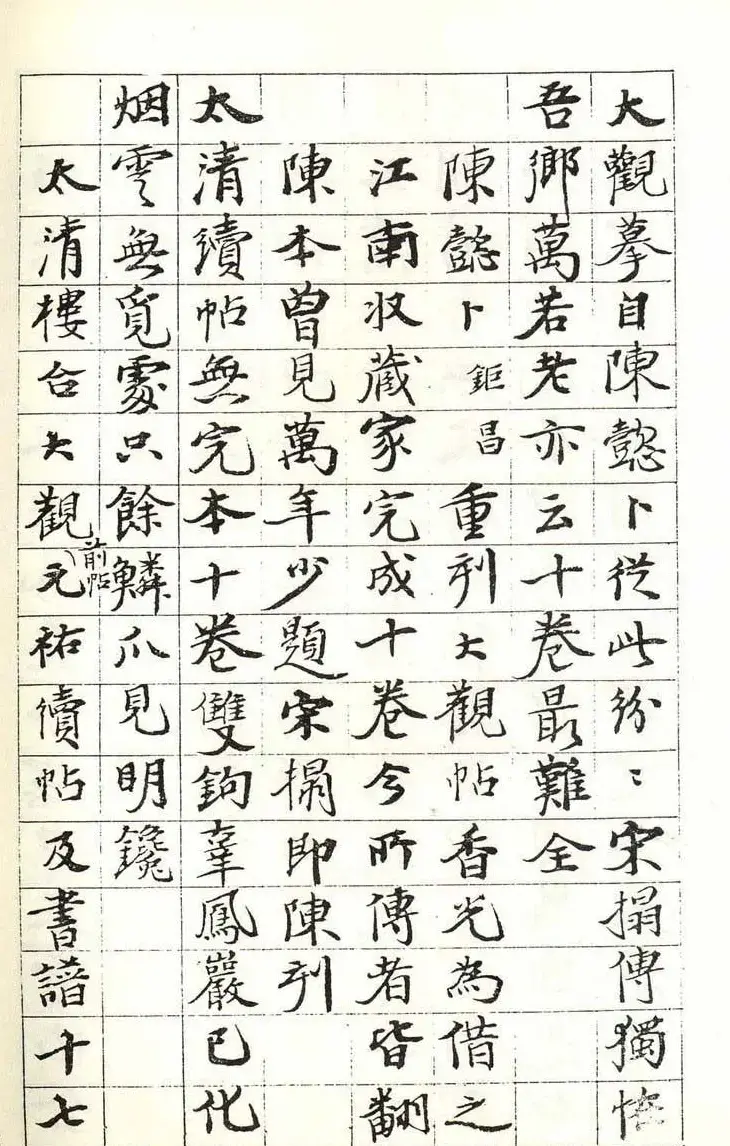 大觀摹自陳懿卜從此紛〻宋搨傳獨怪
吾鄉萬若老亦云十卷最難全
陳懿卜鉅昌重刊大觀帖香光為借之
江南收藏家完成十卷今所傳者皆翻
陳本曾見萬年少題宋搨即陳刊
太清續帖無完本十卷雙鉤葦鳳巖已化
烟雲無覓處只餘鱗爪見明鑱
太清樓合大觀元祐續帖及書譜十七
前帖